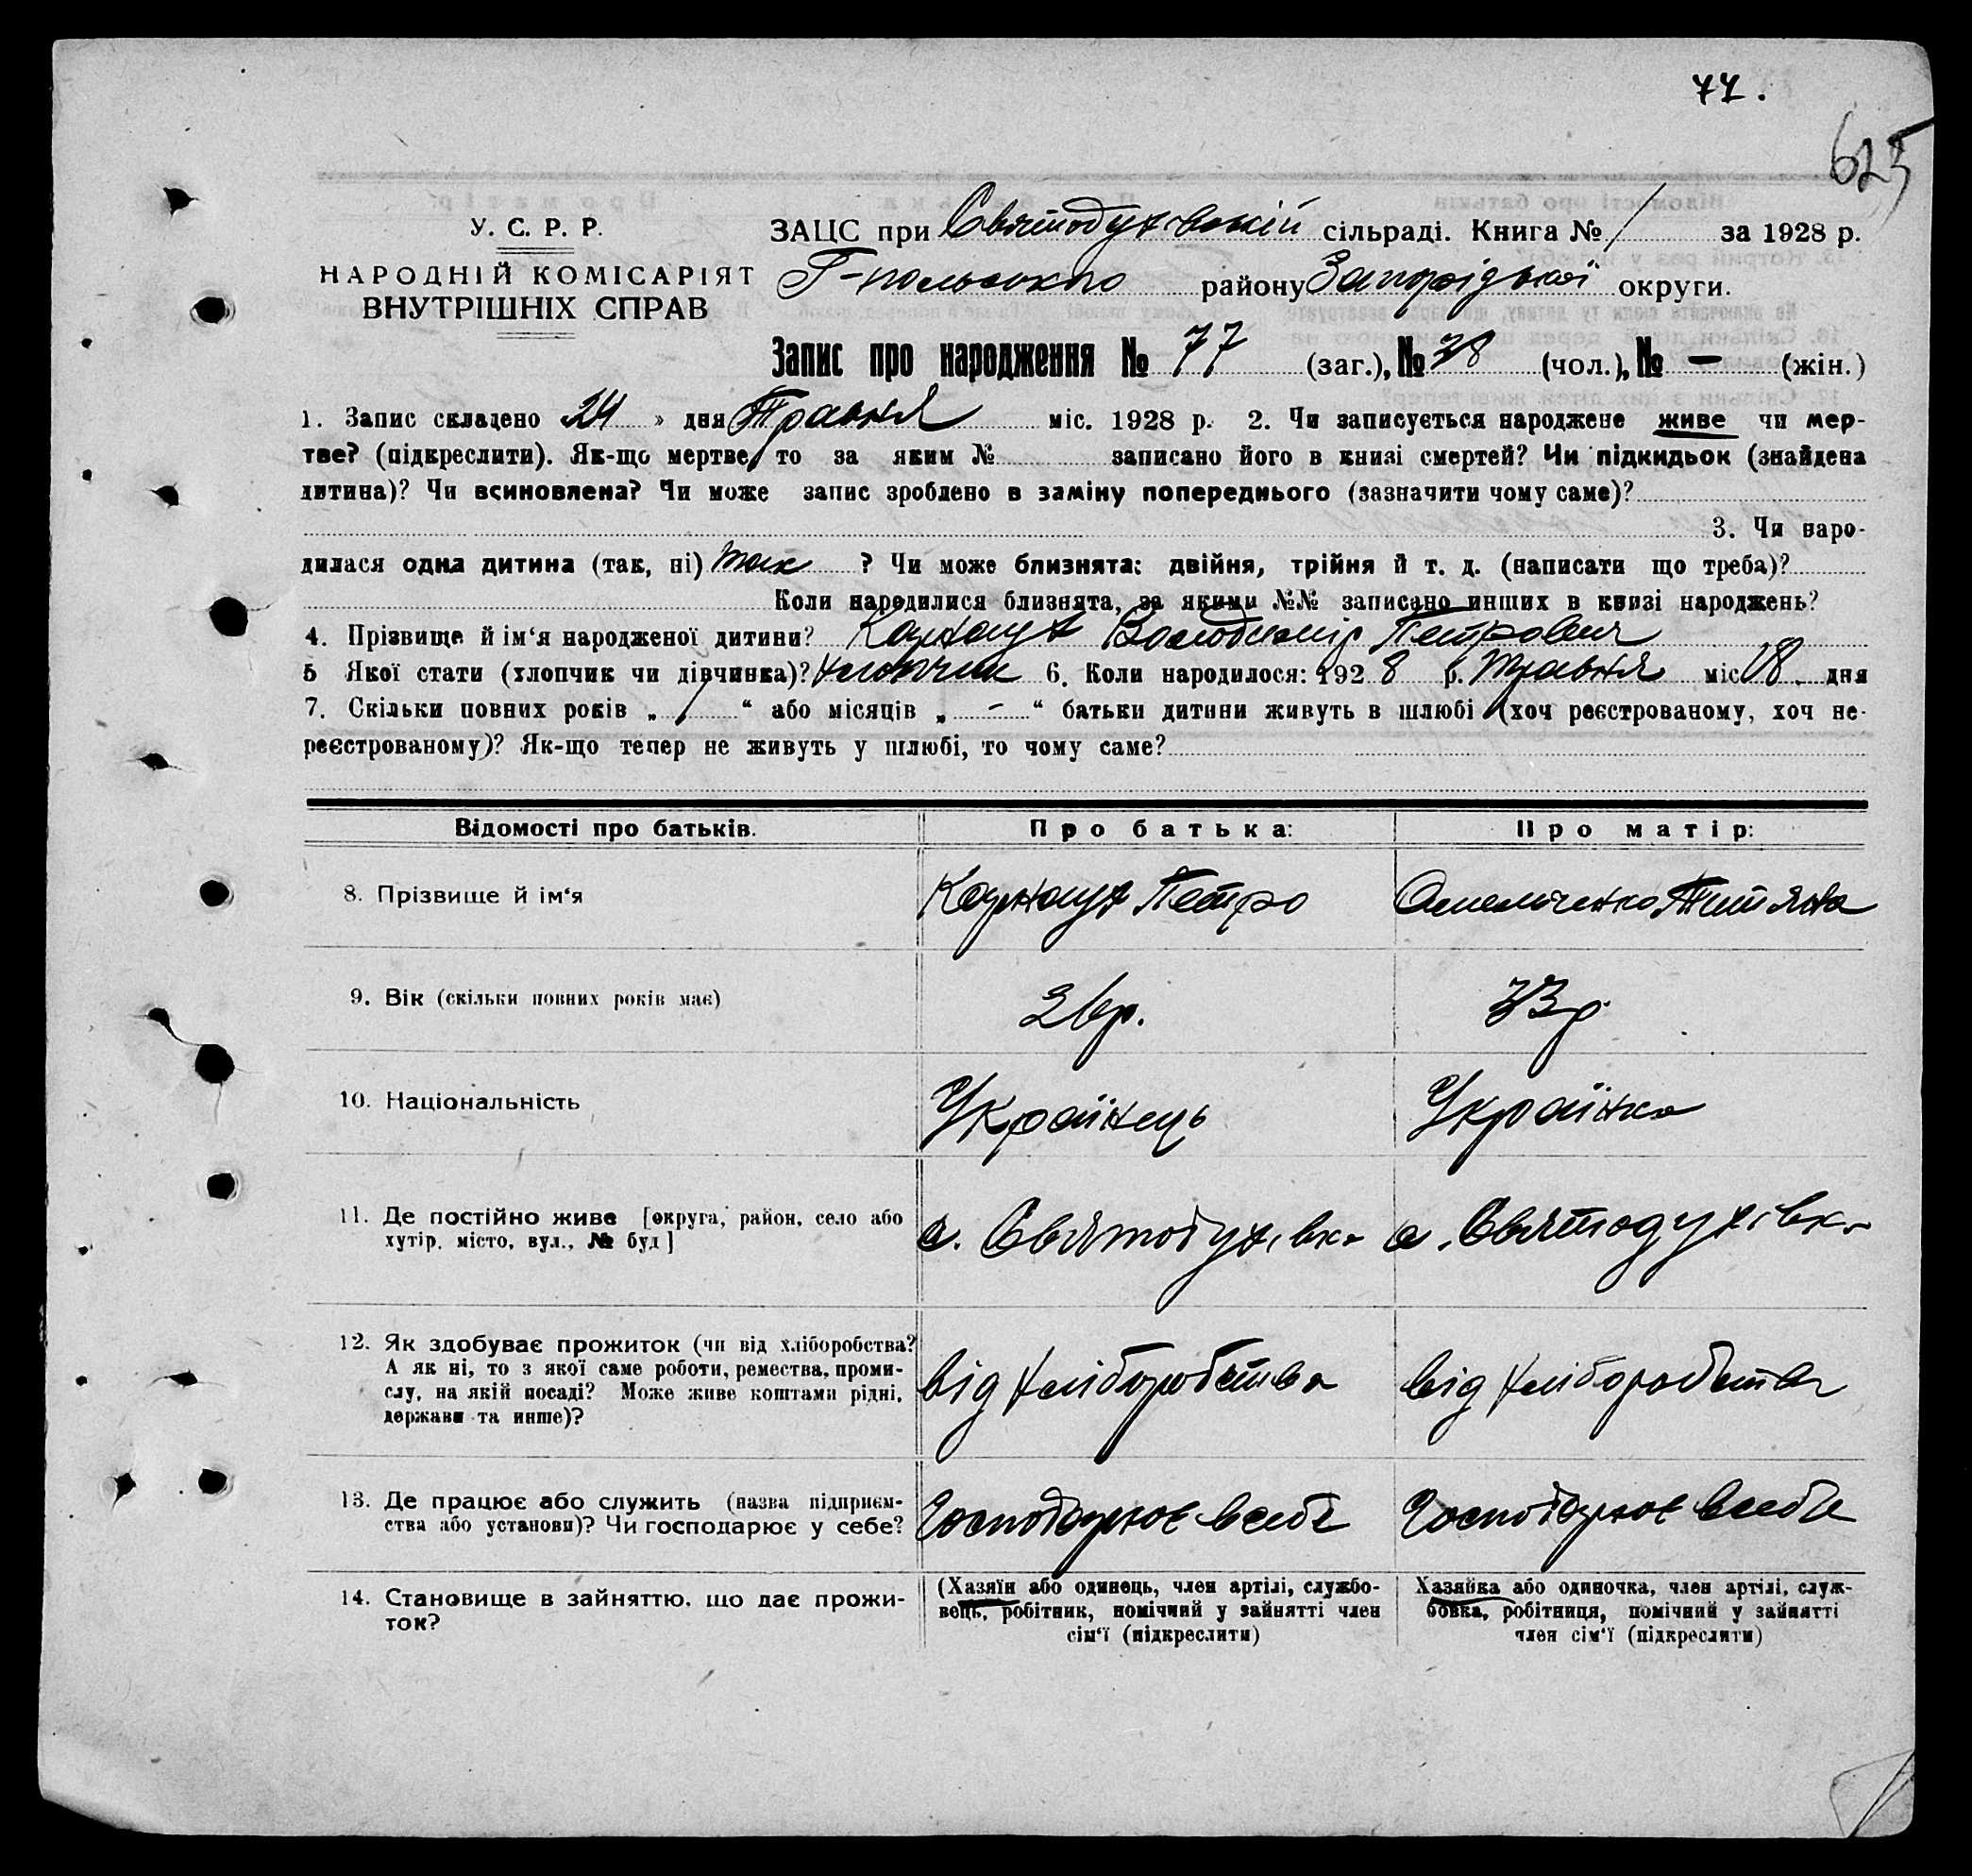 77.
625
У. С. Р. Р.
НАРОДНІЙ КОМІСАРІЯТ
ВНУТРІШНІХ СПРАВ
ЗАЦС при Святодухівській сільраді. Книга № 1 за 1928 р.
Г-польського району Запорізької округи.
Запис про народження № 77 (заг.), № 38 (чол.), № – (жін.)
1. Запис складено 24 » дня Травня міс. 1928 р. 2. Чи записується народжене живе чи мер-
тве? (підкреслити). Як-що мертве, то за яким № записано його в книзі смертей? Чи підкидьок (знайдена
дитина)? Чи всиновлена? Чи може запис зроблено в заміну попереднього (зазначити чому саме)?
3. Чи наро-
дилася одна дитина (так, ні) так ? Чи може близнята: двійня, трійня й т. д. (написати що треба)?
Коли народилися близнята, за якими №№ записано инших в книзі народжень?
4. Прізвище й ім‘я народженої дитини? Карнаух Володимір Петрович
5 Якої стати (хлопчик чи дівчинка)? хлопчик 6. Коли народилося: 1928 р. травня міс 18. дня
7. Скільки повних років „ 1 “ або місяців „ – “ батьки дитини живуть в шлюбі (хоч реєстрованому, хоч не-
реєстрованому)? Як-що тепер не живуть у шлюбі, то чому саме?
Відомості про батьків. Про батька: Про матір:
8. Прізвище й ім‘я Карнаух Петро Омельченко Титяна
9. Вік (скільки повних років має) 26р. 33р
10. Національність Українець Українка
11. Де постійно живе [округа, район, село або
хутір, місто, вул., № буд] с. Святодухівка с. Святодухівка
12. Як здобуває прожиток (чи від хліборобства?
А як ні, то з якої саме роботи, ремества, проми-
слу, на якій посаді? Може живе коштами рідні,
держави та инше)? від хліборобства від хліборобства
13. Де працює або служить (назва підприєм-
ства або установи)? Чи господарює у себе? Господарює всебе Господарює всебе
14. Становище в зайняттю, що дає прожи-
ток?
(Хазяїн або одинець, член артілі, службо-
вець, робітник, помічний у зайнятті член
сім‘ї (підкреслити)
Хазяйка або одиночка, член артілі, служ-
бовка, робітниця, помічний у зайнятті
член сім‘ї (підкреслити)